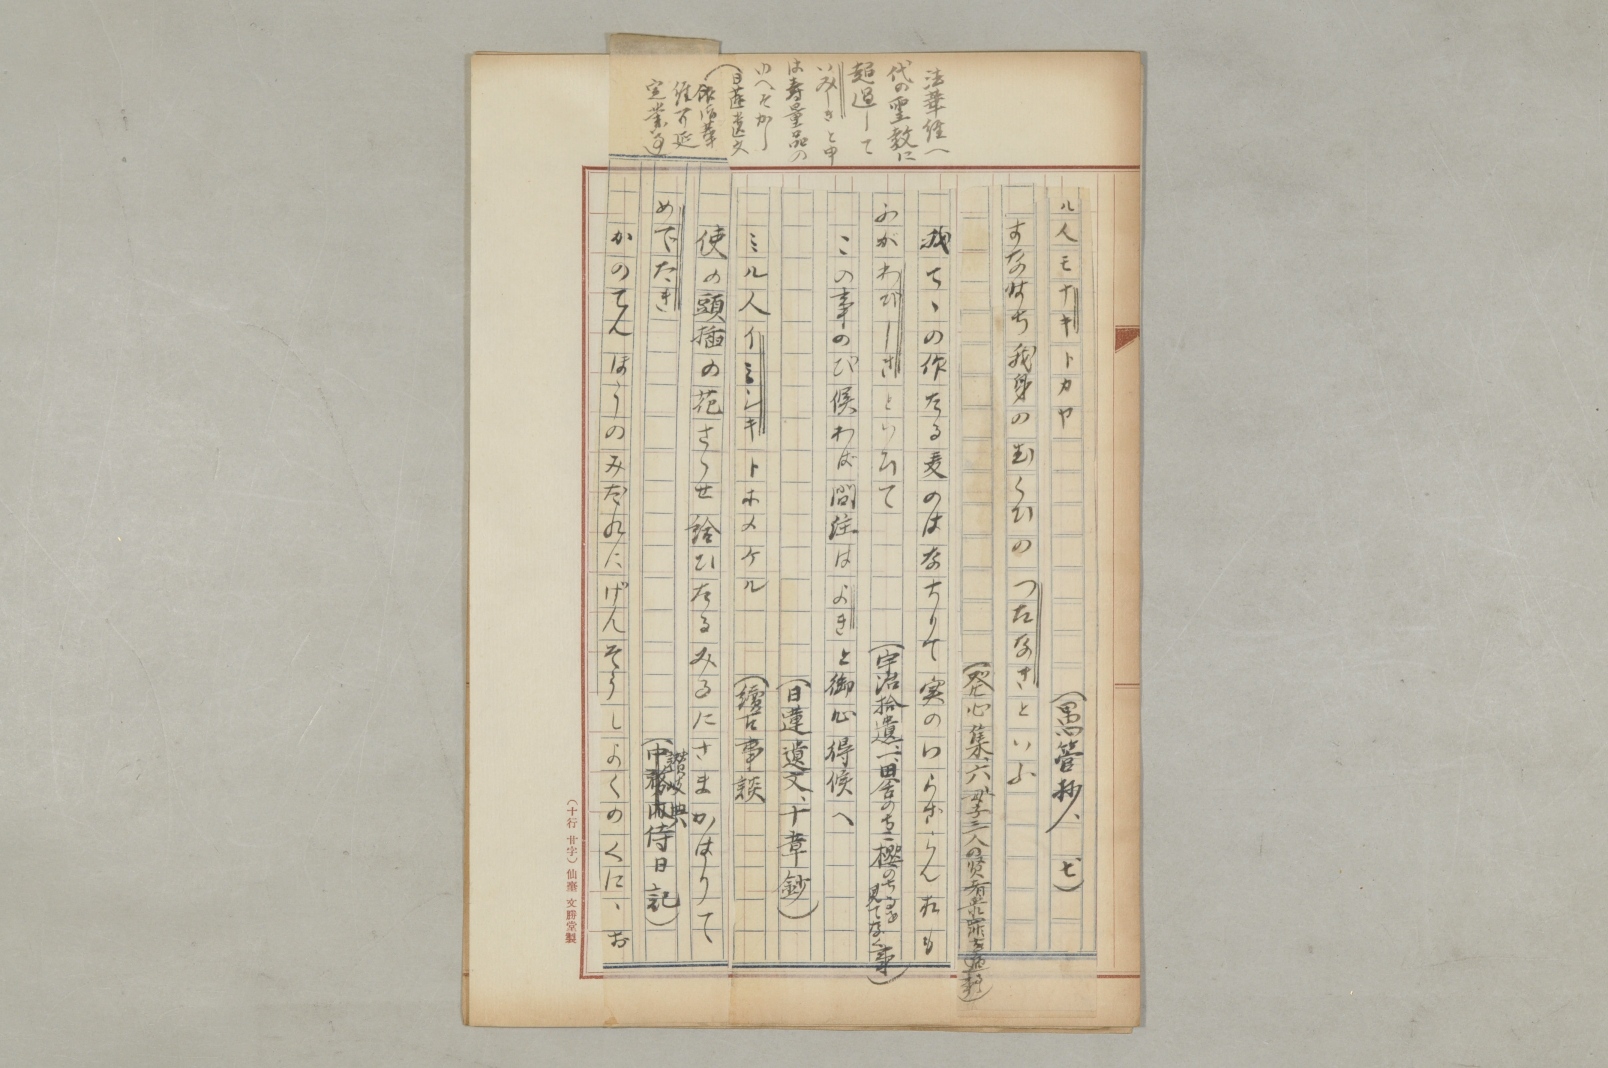 法華経へ
代の聖教に
超過して
いみじきと申
は寿量品の
ゆへぞかし
（日蓮遺文
法華
経可延
定業
ル人モナキトカヤ
（愚管抄、七）
すなはち我身のむくひのつたなきといふ
（発心集、六 母子三人の賢者
我てゝの作たる麦のはなちりて実のいらざらんおも
ふがわびしきといひて
（宇治拾遺、一、田舎の児桜のちるを見てなく事）
この事のび候わば問注はよきと御心得候へ
（日蓮遺文、十章鈔）
ミル人イミシキトホメケル
（續古事談
使の頭插の花さゝせ給ひたるみるにさまかはりて
めでたき
（讃岐典侍日記）
かのてんほうのみだれにげんそうしよくのくに、お
（十行 廿字）仙臺 文勝堂製